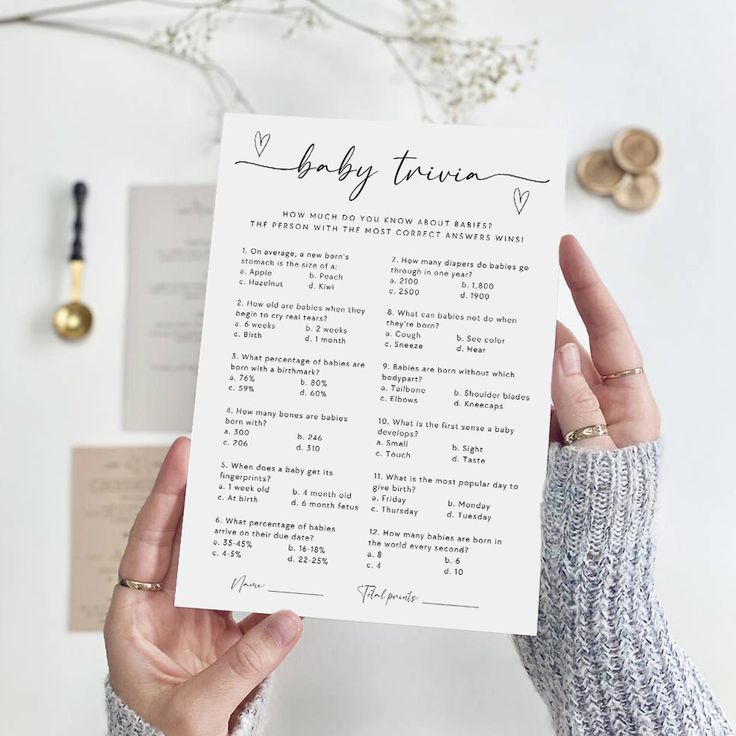 baby trivia
HOW MUCH DO YOU KNOW ABOUT BABIES?
THE PERSON WITH THE MOST CORRECT ANSWERS WINS!
1. On average, a new born's
stomach is the size of a:
a. Apple b. Peach
c. Hazelnut d. Kiwi
2. How old are babies when they
begin to cry real tears?
a. 6 weeks b. 2 weeks
c. Birth d. 1 month
3. What percentage of babies are
born with a birthmark?
a. 76% b. 80%
c. 59% d. 60%
4. How many bones are babies
born with?
a. 300 b. 246
c. 206 d. 310
5. When does a baby get its
fingerprints?
a. 1 week old b. 4 month old
c. At birth d. 6 month fetus
6. What percentage of babies
arrive on their due date?
a. 35-45% b. 16-18%
c. 4-5% d. 22-25%
7. How many diapers do babies go
through in one year?
a. 2100 b. 1,800
c. 2500 d. 1900
8. What can babies not do when
they're born?
a. Cough b. See color
c. Sneeze d. Hear
9. Babies are born without which
bodypart?
a. Tailbone b. Shoulder blades
c. Elbows d. Kneecaps
10. What is the first sense a baby
develops?
a. Smell b. Sight
c. Touch d. Taste
11. What is the most popular day to
give birth?
a. Friday b. Monday
c. Thursday d. Tuesday
12. How many babies are born in
the world every second?
a. 8 b. 6
c. 4 d. 10
Name: Total points